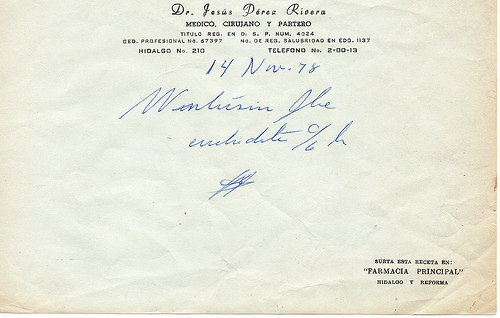 Dr. Jesús Pérez Rivera
MEDICO, CIRUJANO Y PARTERO
TITULO REG. EN D. S. P. NUM. 4024
CED. PROFESIONAL No. 67397 No. DE REG. SALUBRIDAD EN EDO. 1137
HIDALGO No. 210 TELEFONO No. 2-00-13
14 Nov-78
c/6 h
SURTA ESTA RECETA EN:
"FARMACIA PRINCIPAL"
HIDALGO Y REFORMA